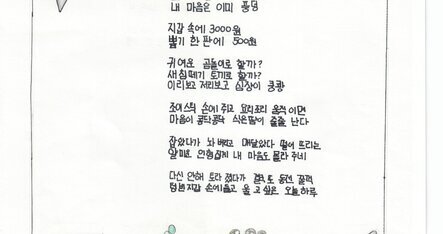 내 마음은 이미 풍덩
지갑 속에 3000원
뽑기 한 판에 500원
귀여운 곰돌이로 할까?
새침떼기 토끼로 할까?
이리보고 저리보고 심장이 쿵쾅
조이스틱 손에 쥐고 요리조리 움직이면
마음이 콩닥콩닥 식은땀이 줄줄 난다
잡았다가 놔 버리고 매달았다 떨어 트리는
얄미운 인형집게 내 마음도 몰라 주네
다신 안해 토라 졌다가
텅빈지갑 손에들고 울 고 싶은 오늘하루